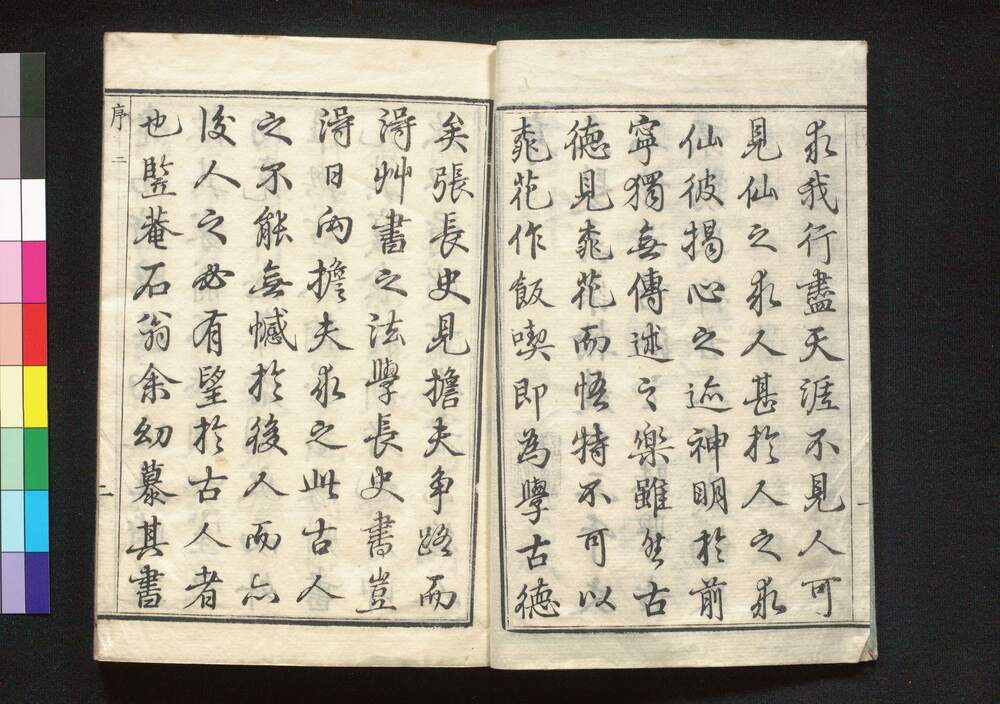 求我行盡天涯不見人可
見仙之求人甚於人之求
仙彼揭心之迹神明於前
寧獨無傳述之樂雖然古
德見桃花而悟特不可以
桃花作飯喫即為學古德
矣張長史見擔夫爭路而
得艸書之法學長史書豈
得日向擔夫求之此古人
之不能無憾於後人而亦
後人之必有望於古人者
也豎菴石翁余幼慕其書
序
二
一
二